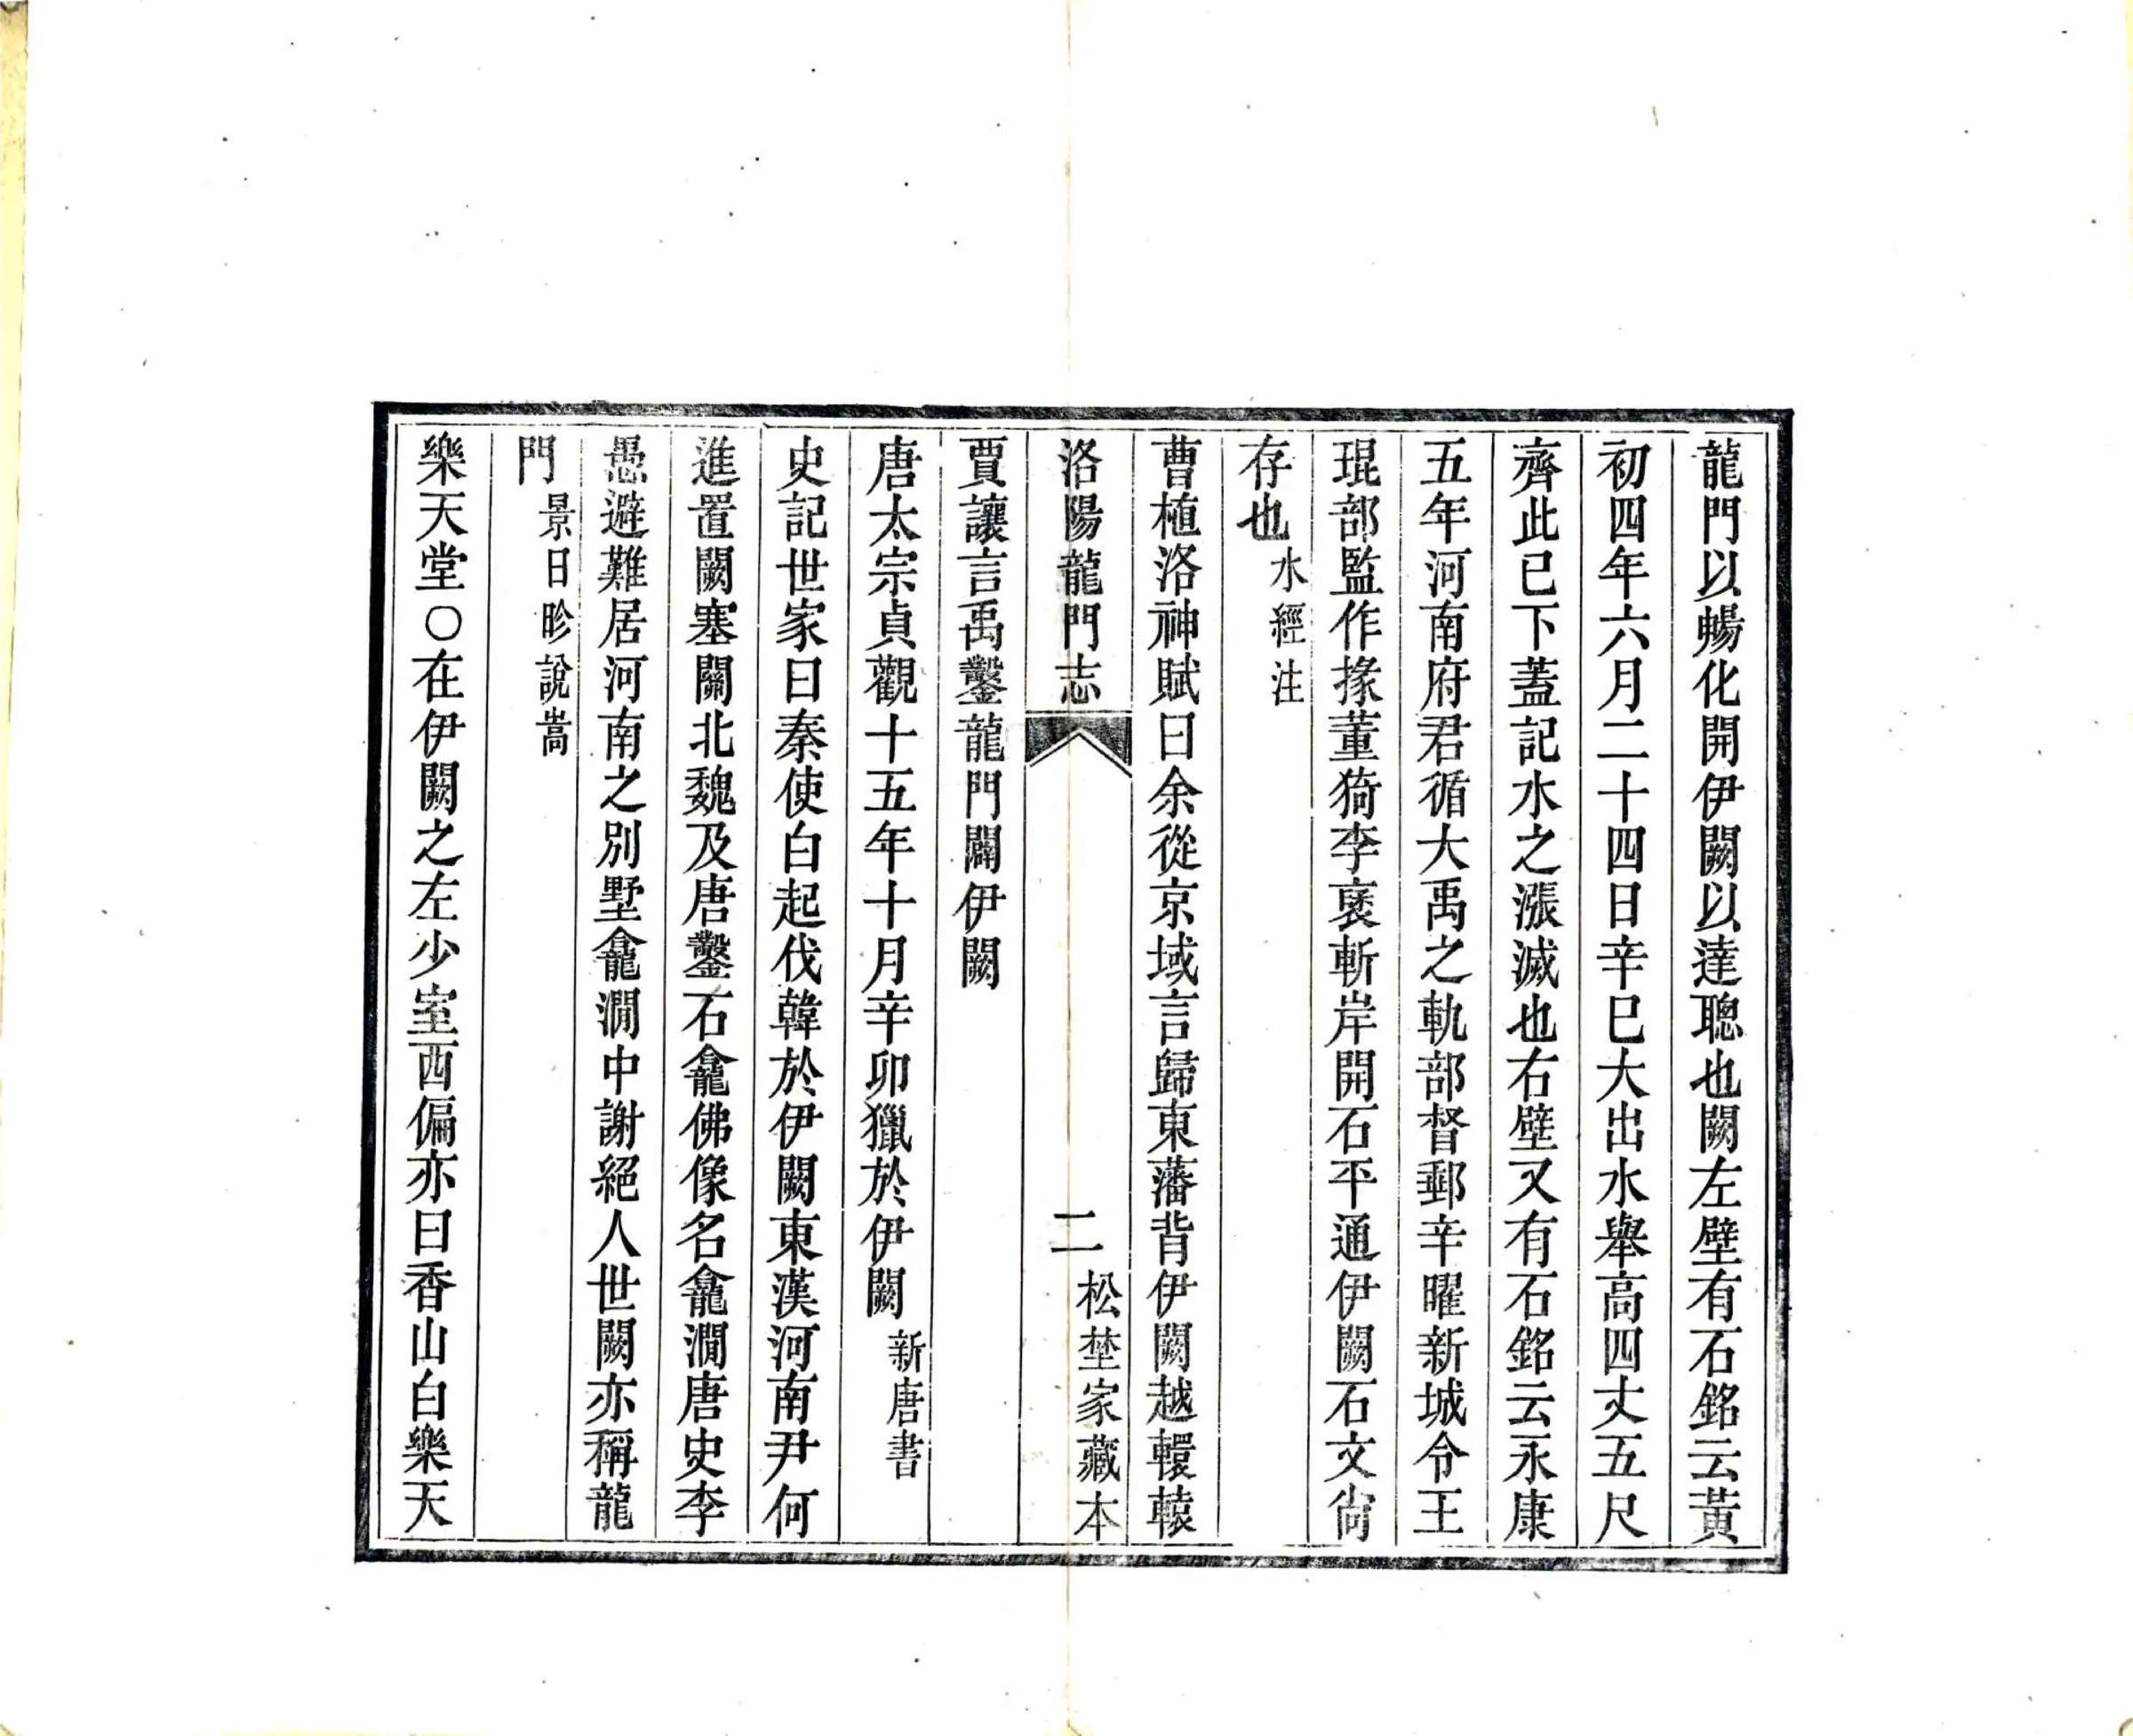 龍門以暢化開伊闕以達聰也闕左壁有石銘云黃
初四年六月二十四日辛巳大出水舉高四丈五尺
齊此已下蓋記水之漲滅也右壁又有石銘云永康
五年河南府君循大禹之軌部督郵辛曜新城令王
琨部監作掾董猗李褒斬岸開石平通伊闕石文尚
存也水經注
曹植洛神賦曰余從京域言歸東藩背伊闕越轘轅
洛陽龍門志 二 松埜家藏本
賈讓言禹鑿龍門闢伊闕
唐太宗貞觀十五年十月辛卯獵於伊闕新唐書
史記世家曰秦使白起伐韓於伊闕東漢河南尹何
進置闕塞關北魏及唐鑿石龕佛像名龕澗唐史李
愚避難居河南之別墅龕澗中謝絕人世闕亦稱龍
門景日昣說嵩
樂天堂〇在伊闕之左少室西偏亦曰香山白樂天